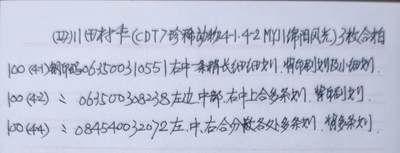 四川田村卡(CDT7珍稀动物4-1.4-2 MY川绵阳风光)3枚合拍
100(4-1)钢印码063500310551右中一条稍长细细划.背印刷划及小细划.
100(4-2) 〃 063500308238左边.中部.右中上合多条划.背印刷划.
100(4-4) 〃 084540032072左.中.右合分散名处多条划.背多条划.